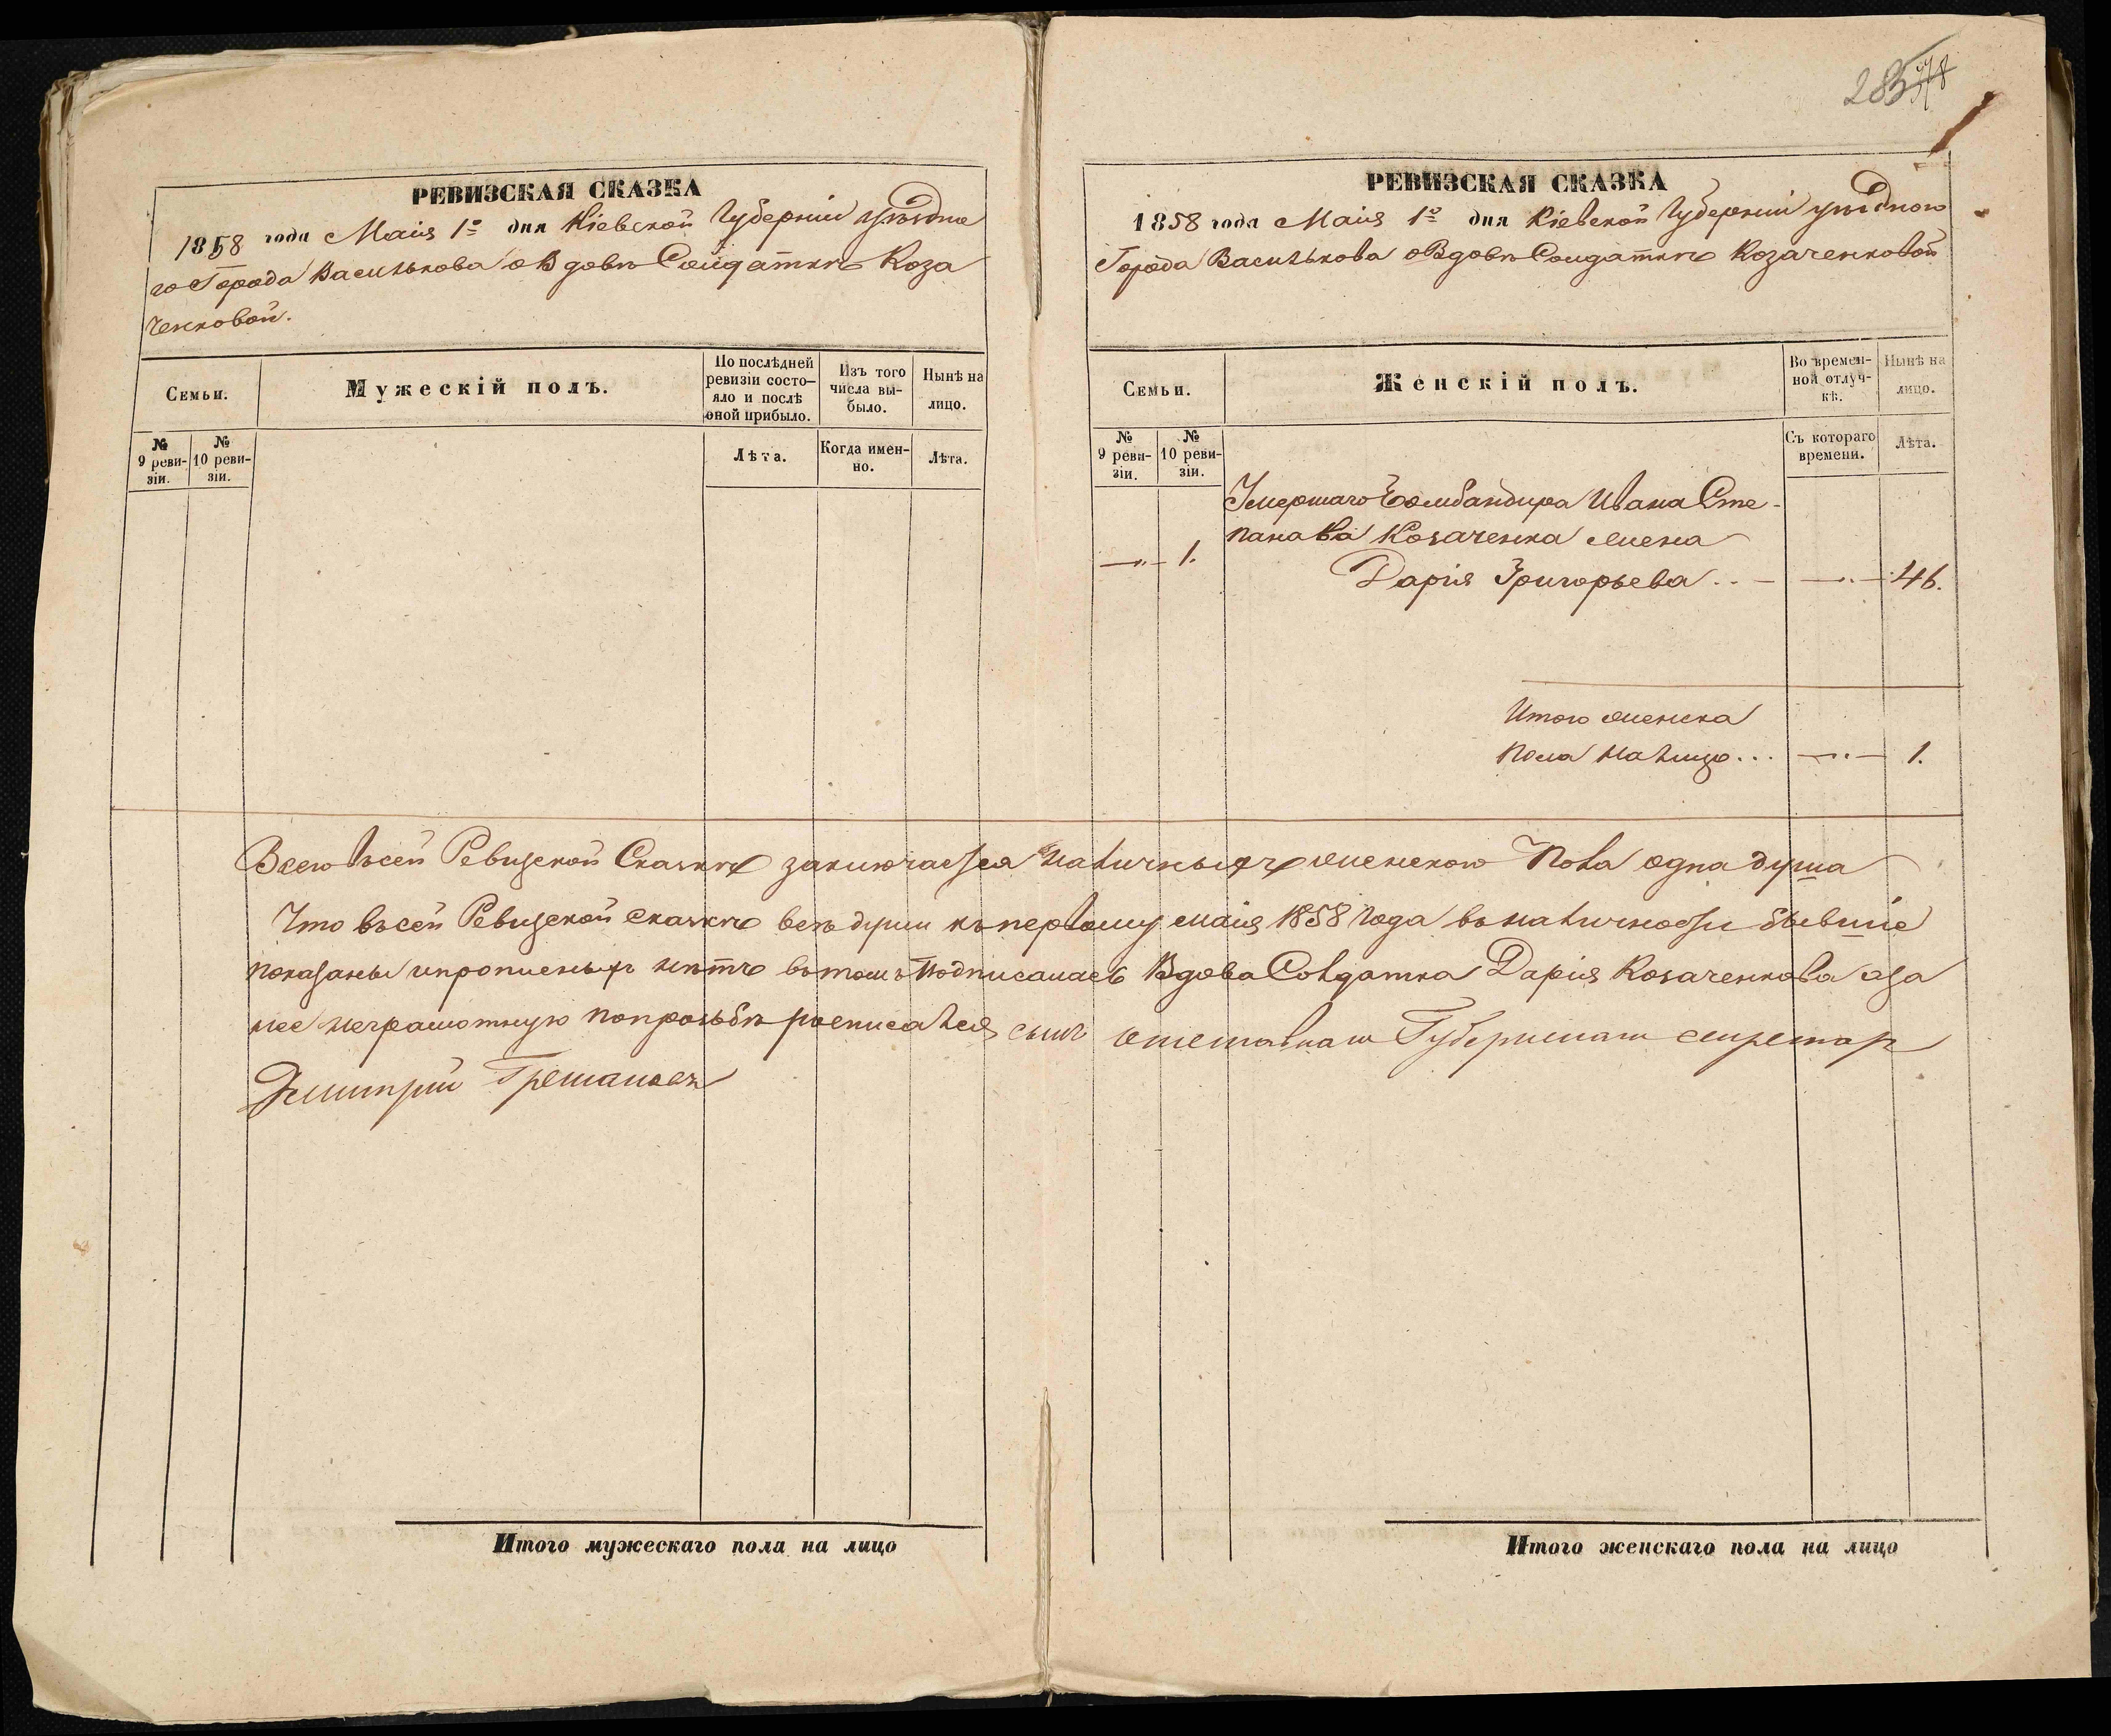 283
РЕВИЗСКАЯ СКАЗКА
1858 года Маія 1го дня Кіевской Губерніи уѣздна
го Города Василькова о Вдовѣ Солдаткѣ Коза
ченковой.
Семьи.
Мужескій полъ.
По послѣдней ревизіи состо-
яло и послѣ оной прибыло.
Изъ того числа вы-
было.
Нынѣ на лицо.
№ 9 реви-
зіи.
№ 10 реви-
зіи.
Лѣта.
Когда имен-
но.
Лѣта.
РЕВИЗСКАЯ СКАЗКА
1858 года Маія 1го дня Кіевской Губерніи уѣзднаго
Города Василькова о Вдовѣ Солдаткѣ Козаченковой
Семьи.
Женскій полъ.
Во времен-
ной отлуч-
кѣ.
Нынѣ на лицо.
№ 9 реви-
зіи.
№ 10 реви-
зіи.
Съ котораго времени.
Лѣта.
Умершаго Бомбандира Ивана Сте-
панова Козаченка жена
1.
Дарія Григорьева 46.
Итого женска
пола налицо... 1.
Всего въ сей Ревизской Сказкѣ заключается наличныхъ женскаго пола одна душа
Что въ сей Ревизской сказкѣ всѣ души къ первому маія 1858 года въ наличности бывшіе
показаны и прописныхъ нѣтъ въ томъ подписалась Вдова Солдатка Дарія Козаченкова а за
нее неграмотную по прозьбѣ росписался Губернски секретар
Дмитрий
Итого мужескаго пола на лицо
Итого женскаго пола на лицо